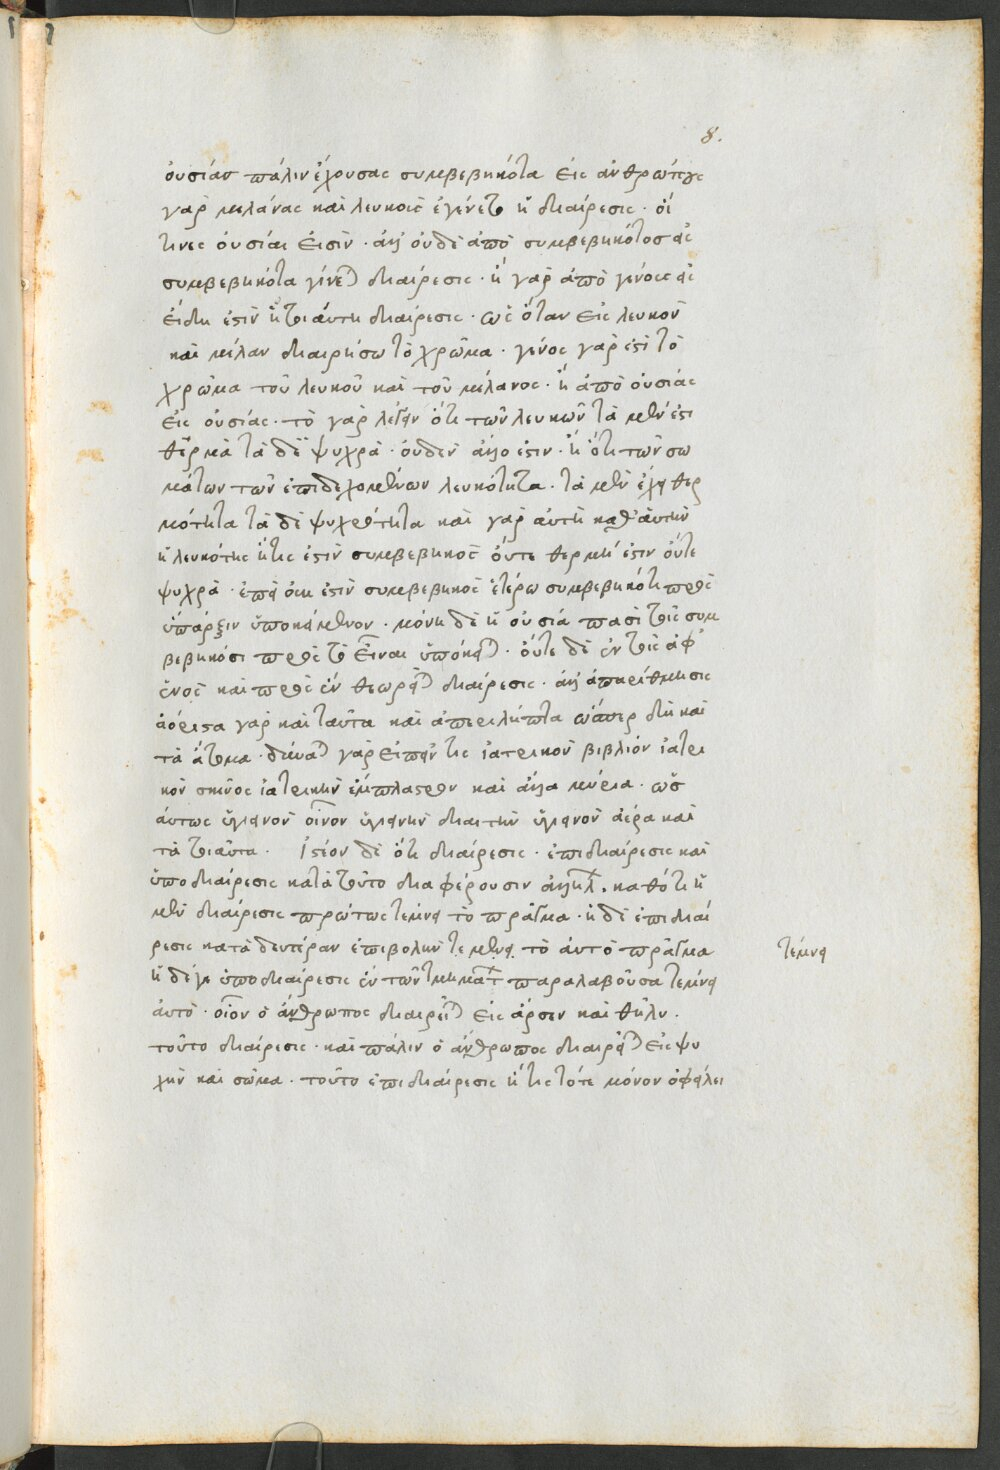 8.
ὀυσίασ πάλιν ἐχουσας συμβεβηκότα εἰς ἀνθρώπους
γὰρ μελάνας καὶ λευκοὺς ἐγίνετο ἡ διαίρεσις · ὅι
τινες ὀυσίαι ἐισὶν · ἀλλ' ὀυδὲ ἀπὸ συμβεβηκότοσ εἰς
συμβεβηκότα γίνεται διαίρεσις · ἢ γὰρ ἀπὸ γένους εἰς
ἔιδη ἐστὶν ἡ τοιάυτη διαίρεσις · ὡς ὅταν εἰς λευκὸν
καὶ μέλαν διαιρήσω τὸ χρῶμα · γένος γὰρ ἐστὶ τὸ
χρῶμα τοῦ λευκοῦ καὶ τοῦ μέλανος · ἢ ἀπὸ ὀυσίας
εἰς ὀυσίας · τὸ γὰρ λέγειν ὅτι τῶν λευκῶν τὰ μὲν ἐστι
θερμὰ τὰ δὲ ψυχρὰ · ὀυδὲν ἄλλο ἐστιν · ἢ ὅτι τῶν σω
μάτων τῶν ἐπιδεχομένων λευκότητα · τὰ μὲν ἔχει θερ
μότητα τὰ δὲ ψυχρότητα καὶ γὰρ αὐτὴ καθ' ἁυτὴν
ἡ λευκότης ἥτις ἐστὶν συμβεβηκὸς ὄυτε θερμή ἐστιν ὄυτε
ψυχρὰ · ἐπεὶ ὀυκ ἐστὶν συμβεβηκὸς ἑτέρω συμβεβηκότι πρὸς
ὑπαρξιν ὑποκείμενον · μόνη δὲ ἡ ὀυσία πασὶ τοῖς συμ
βεβηκόσι πρὸς τὸ εἶναι ὑπόκειται · ὄυτε δὲ ἐν τοῖς ἀφ'
ἑνὸς καὶ πρὸς ἓν θεωρεῖται διαίρεσις · ἀλλ' ἀπαρίθμησις
ἀόριστα γὰρ καὶ ταῦτα καὶ ἀπεριληπτα ὥσπερ δὴ καὶ
τὰ ἄτομα · δύναται γὰρ ἐιπεῖν τις ἰατρικὸν βιβλίον ἰατρι
κὸν σκεῦος ἰατρικὴν ἔμπλαστρον καὶ ἄλλα μύρια · ὡσ
άυτως ὑγιεινὸν οἶνον ὑγιεινὴν διαιτην ὑγιεινὸν ἀέρα καὶ
τὰ τοιαῦτα · Ἰστέον δὲ ὅτι διαίρεσις · ἐπιδιαίρεσις καὶ
ὑποδιαίρεσις κατὰ τοῦτο διαφέρουσιν ἀλλήλων · καθότι ἡ
μὲν διαίρεσις πρώτως τέμνει τὸ πρᾶγμα · ἡ δὲ ἐπιδιαί
ρεσις κατὰ δευτέραν ἐπιβολὴν τεμενει τὸ ἀυτὸ πρᾶγμα
τέμνει
ἡ δέ γε ὑποδιαίρεσις ἓν τῶν τμημάτων παραλαβοῦσα τέμνει
ἀυτὸ · οἷον ὁ ἄνθρωπος διαιρεῖται εἰς ἄρσεν καὶ θῆλυ ·
τοῦτο διαίρεσις · καὶ πάλιν ὁ ἄνθρωπος διαιρεῖται εἰς ψυ
χὴν καὶ σῶμα · τοῦτο ἐπιδιαίρεσις ἥτις τότε μόνον ὀφείλει